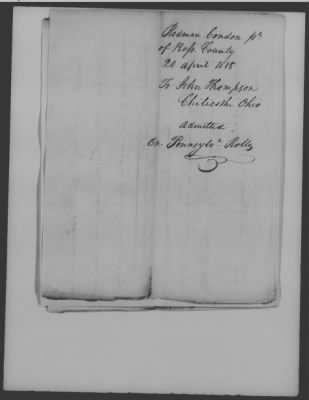 Redman Condon pr
of Ross County
20 April 1818
To John Thompson
Chilicothe Ohio
Admitted
On. Pennsylva Rolls